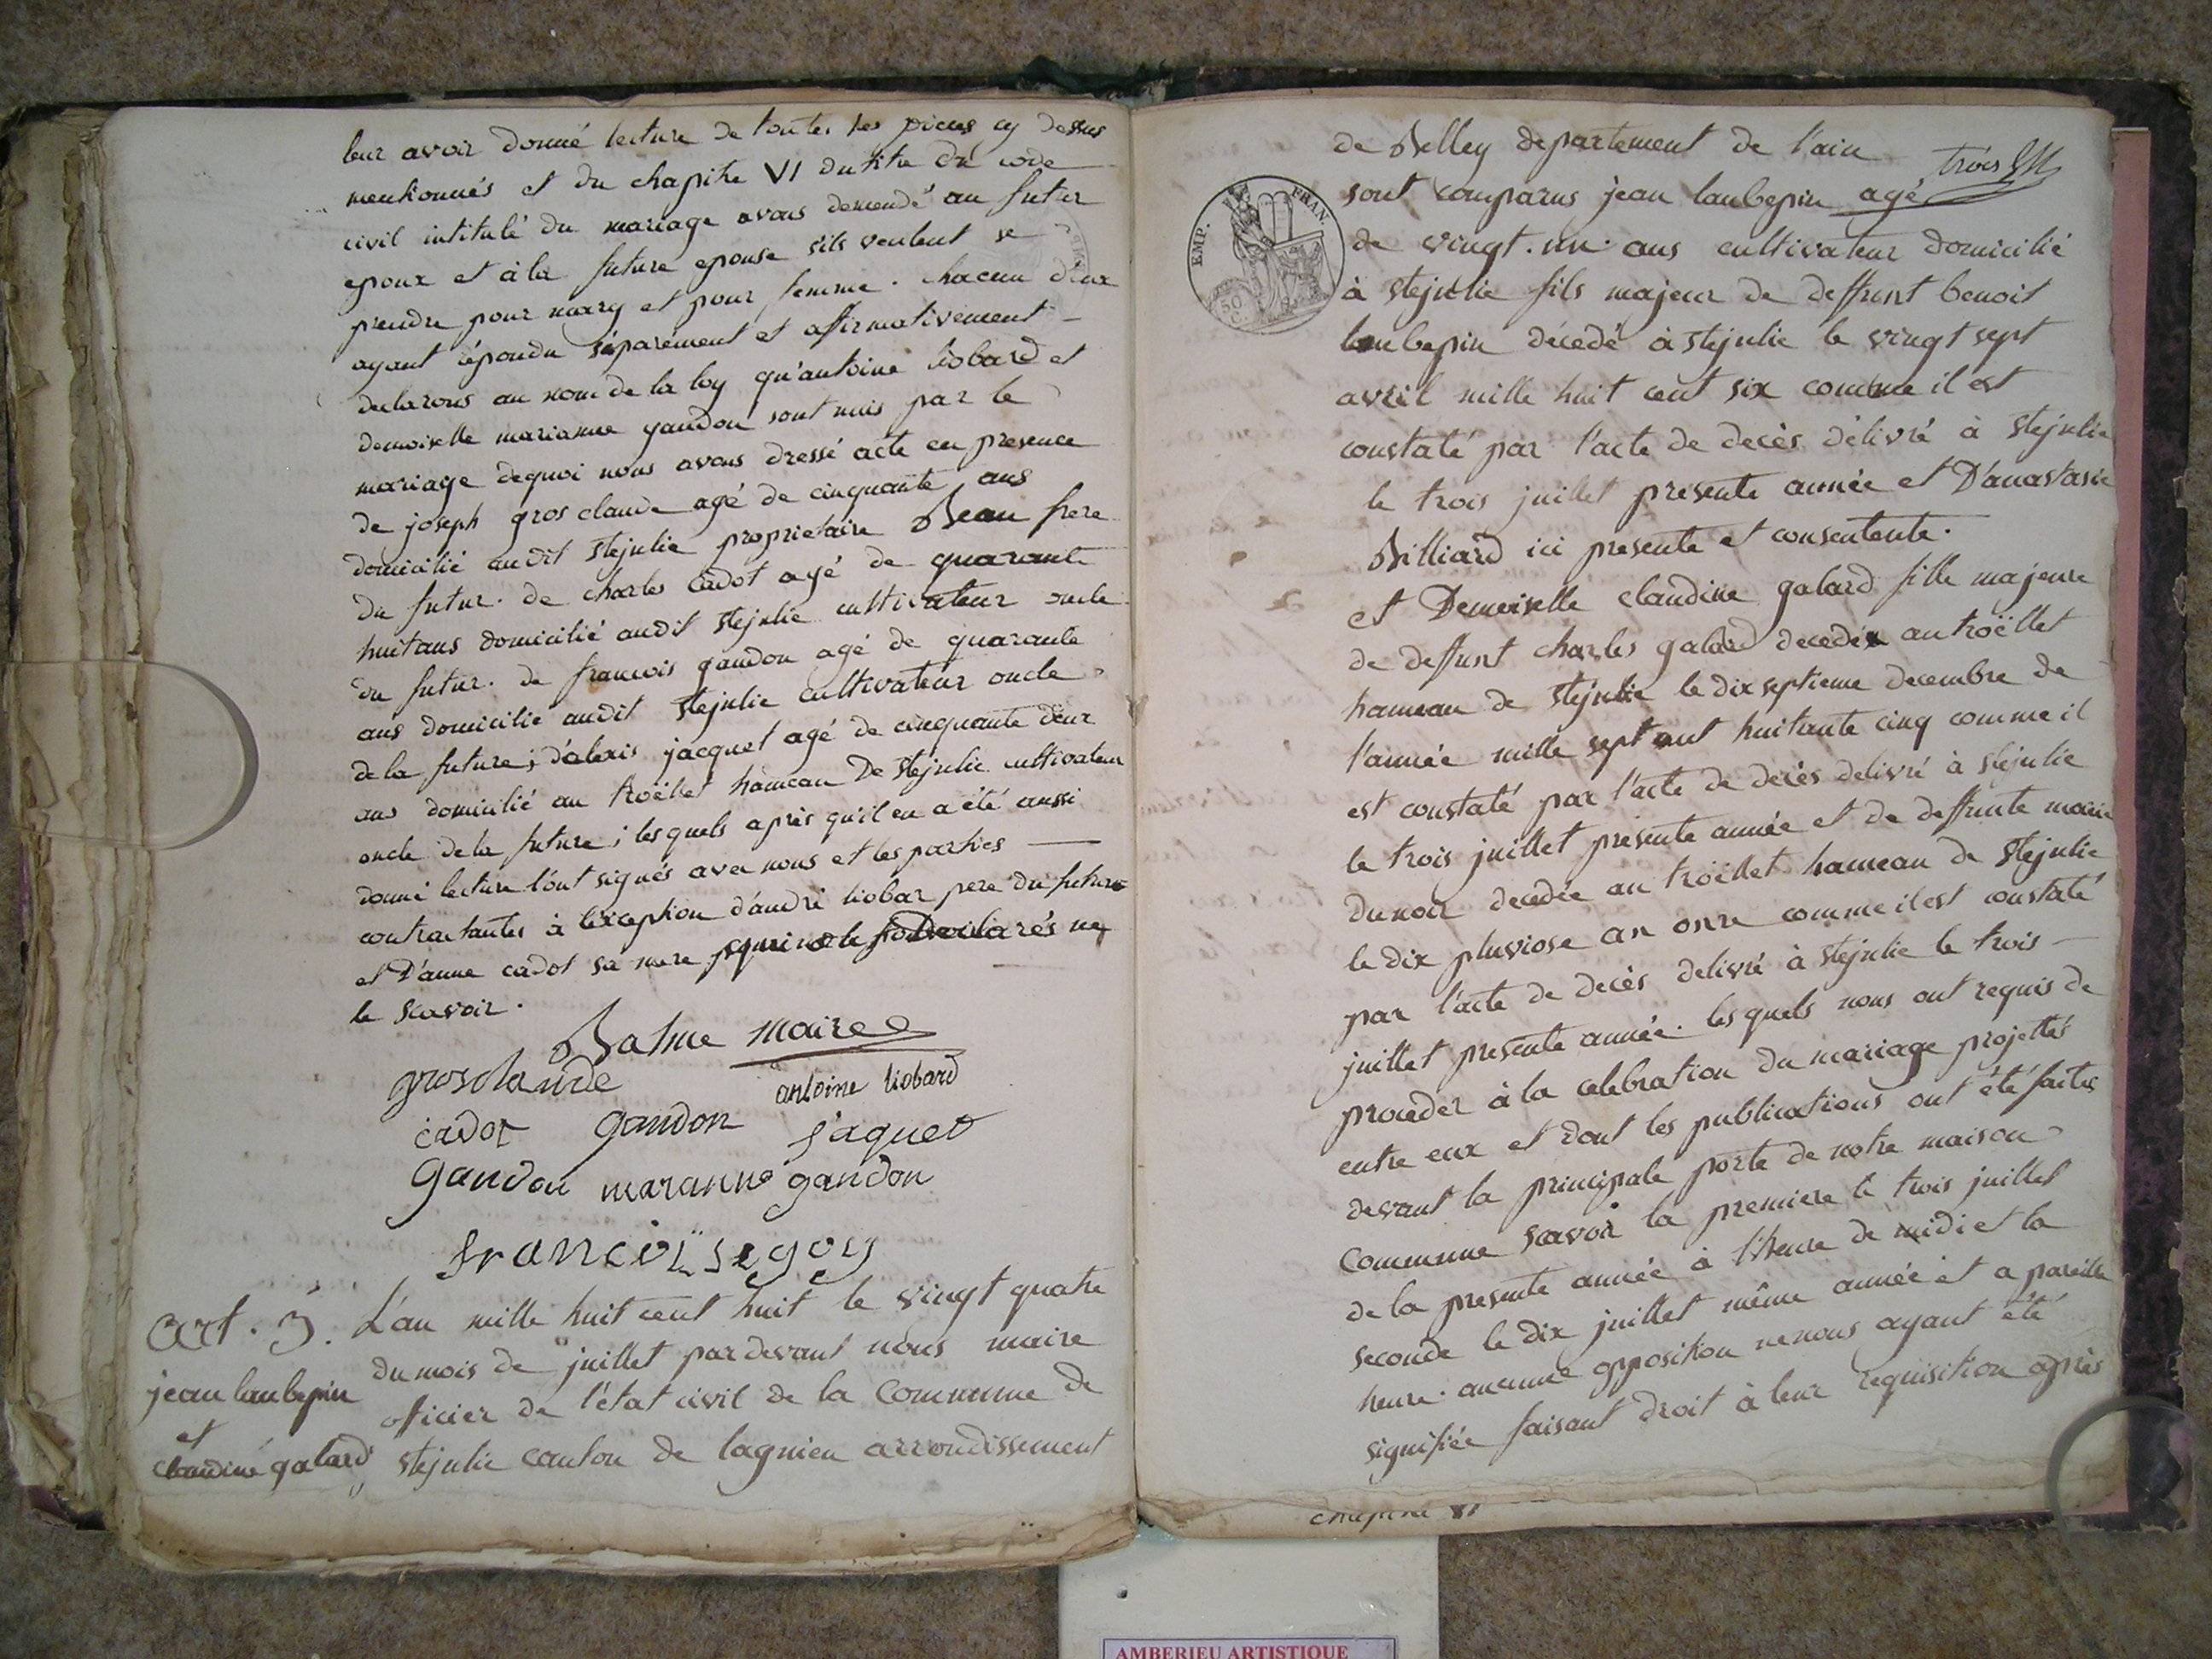 leur avoir donné lecture de toutes les pieces cy dessus
mentionnés et du chapitre VI du titre du code
civil intitulé du mariage avons demendé au futur
epoux et à la future epouse s'ils veulent se
prendre pour mary et pour femme. chacun d'eux
ayant répondu séparément et affirmativement
declarons au nom de la loy qu'antoine liobard et
demoiselle marianne gandon sont unis par le
mariage dequoi nous avons dressé acte en presence
de joseph gros claude agé de cinquante ans
domicilié audit stejulie proprietaire Beau frere
du futur. de charles cadot agé de quarante
huit ans domicilié audit stejulie cultivateur oncle
du futur. de francois gandon agé de quarante
ans domicilié audit stejulie cultivateur oncle
de la future; d'alexis jacquet agé de cinquante deux
ans domicilié au troëllet hameau De stejulie cultivateur
oncle de la future; lesquels après qu'il en a été aussi
donné lecture l'ont signés avec nous et les parties
contractantes à l'exception d'andré liobar pere du futur
et D'anne cadot sa mere declarés ne
le scavoir.
Balme maire
grosclaude
antoine liobard
cadot gandon jaquet
gandon maranne gandon
françois segoy
art. 3. L'an mille huit cent huit le vingt quatre
du mois de juillet pardevant nous maire
jean laubepin officier de l'état civil de la Commune de
et
claudine galard stejulie canton de lagnieu arrondissement
de Belley departement de l'ain
trois
EMP. FRAN.
50 C.
sont comparus jean laubepin agé
de vingt. un. ans cultivateur domicilié
à stejulie fils majeur de deffunt benoit
laubepin décedé à stejulie le vingt sept
avril mille huit cent six comme il est
constaté par l'acte de decès délivré à stejulie
le trois juillet presente année et D'anastasie
Billiard ici presente et consentente.
et Demeiselle claudine galard fille majeure
de deffunt charles galard decedé au troëllet
hameau de stejulie le dix septieme decembre de
l'année mille sept cent huitante cinq comme il
est constaté par l'acte de decès delivré à stejulie
le trois juillet presente année et de deffunte marie
dunoir decedée au troëllet hameau de stejulie
le dix pluviose an onze comme il est constaté
par l'acte de decès delivré à stejulie le trois
juillet presente année. lesquels nous ont requis de
proceder à la celebration du mariage projettés
entre eux et dont les publications ont été faites
devant la principale porte de notre maison
Commune scavoir la premiere le trois juillet
de la presente année à l'heure de midi et la
seconde le dix juillet même année et a pareille
heure. aucunne opposition ne nous ayant été
signifiée faisant droit à leur requisition après
AMBERIEU ARTISTIQUE